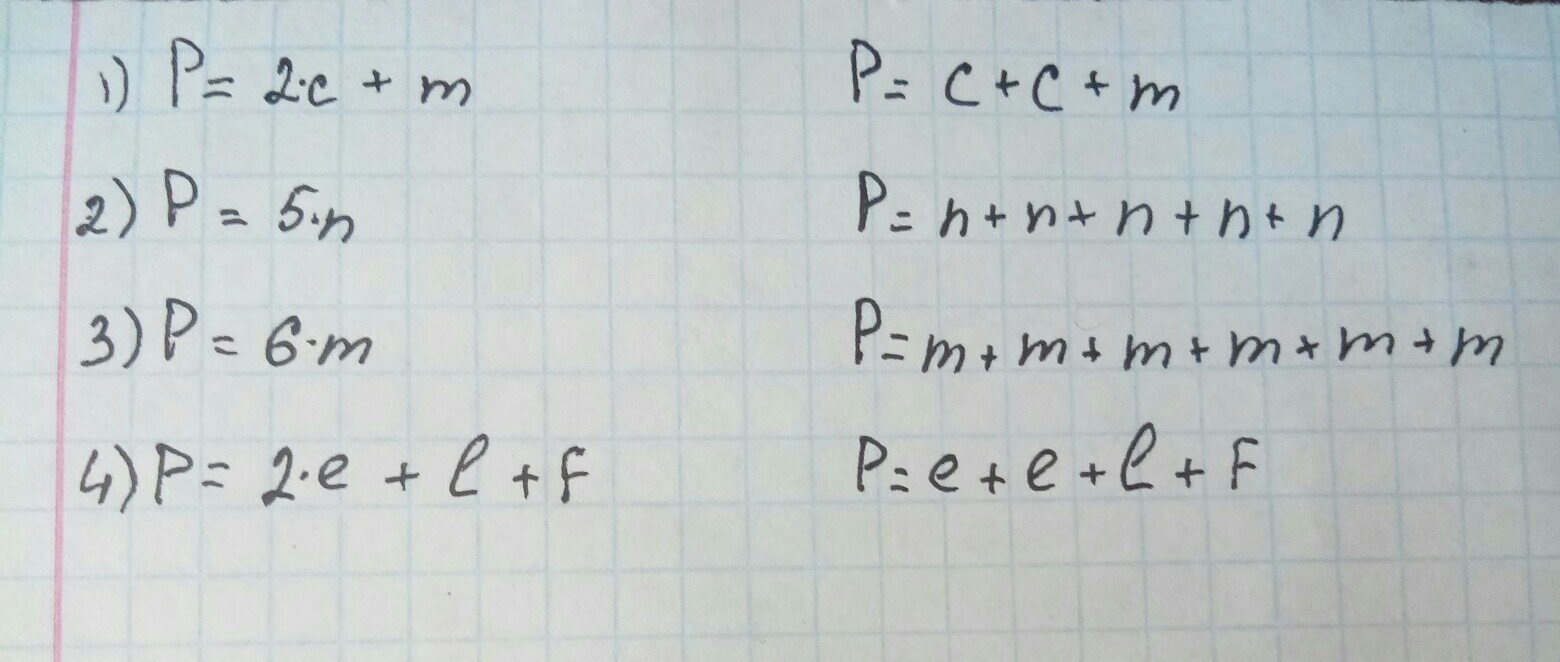 1) P = 2·c + m P = c + c + m
2) P = 5·n P = n + n + n + n + n
3) P = 6·m P = m + m + m + m + m + m
4) P = 2·e + l + F P = e + e + l + F